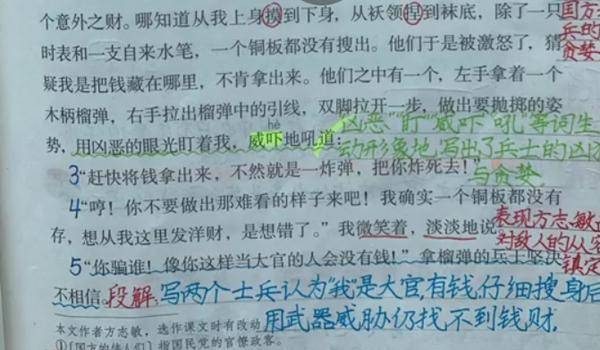 个意外之财。哪知道从我上身摸到下身，从袄领捏到袜底，除了一只
国方
兵的
贪婪
时表和一支自来水笔，一个铜板都没有搜出。他们于是被激怒了，猜
疑我是把钱藏在哪里，不肯拿出来。他们之中有一个，左手拿着一个
木柄榴弹，右手拉出榴弹中的引线，双脚拉开一步，做出要抛掷的姿
hè
势，用凶恶的眼光盯着我，威吓地吼道：
凶恶"盯"威吓"吼"等词生
动形象地写出了兵士的凶
与贪婪
3"赶快将钱拿出来，不然就是一炸弹，把你炸死去！"
4"哼！你不要做出那难看的样子来吧！我确实一个铜板都没有
存，想从我这里发洋财，是想错了。"我微笑着，淡淡地说
表现方志敏
对敌人的从容
镇定
5"你骗谁！像你这样当大官的人会没有钱！"拿榴弹的兵士坚决
不相信。段解：写两个士兵认为"我"是大官，有钱，仔细搜身后
用武器威胁仍找不到钱财.
本文作者方志敏，选作课文时有改动
①〔国方的伟人们〕指国民党的官僚政客。